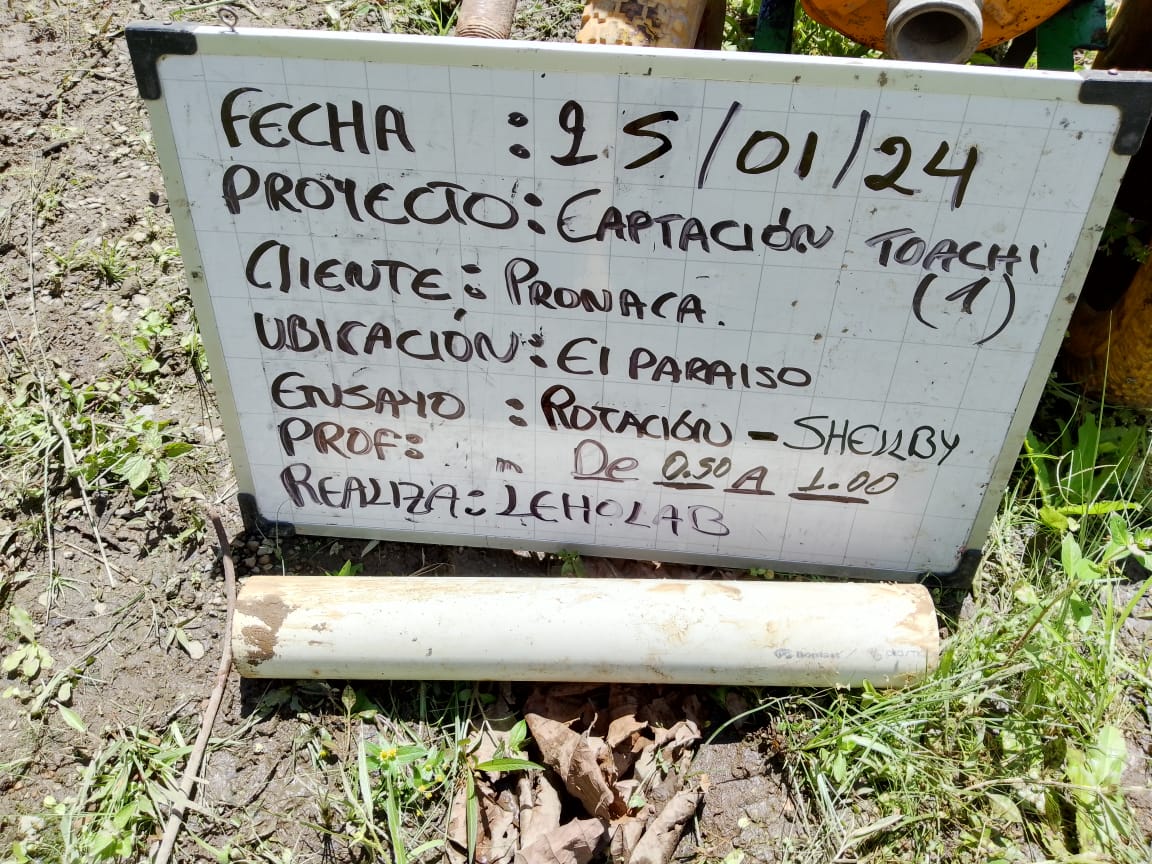 FECHA : 25/01/24
PROYECTO: CAPTACIÓN TOACHI
(1)
CLIENTE: PRONACA.
UBICACIÓN: El PARAISO
ENSAYO : ROTACIÓN - SHELLBY
PROF: De 0.50 A 1.00
REALIZA: LEHOLAB